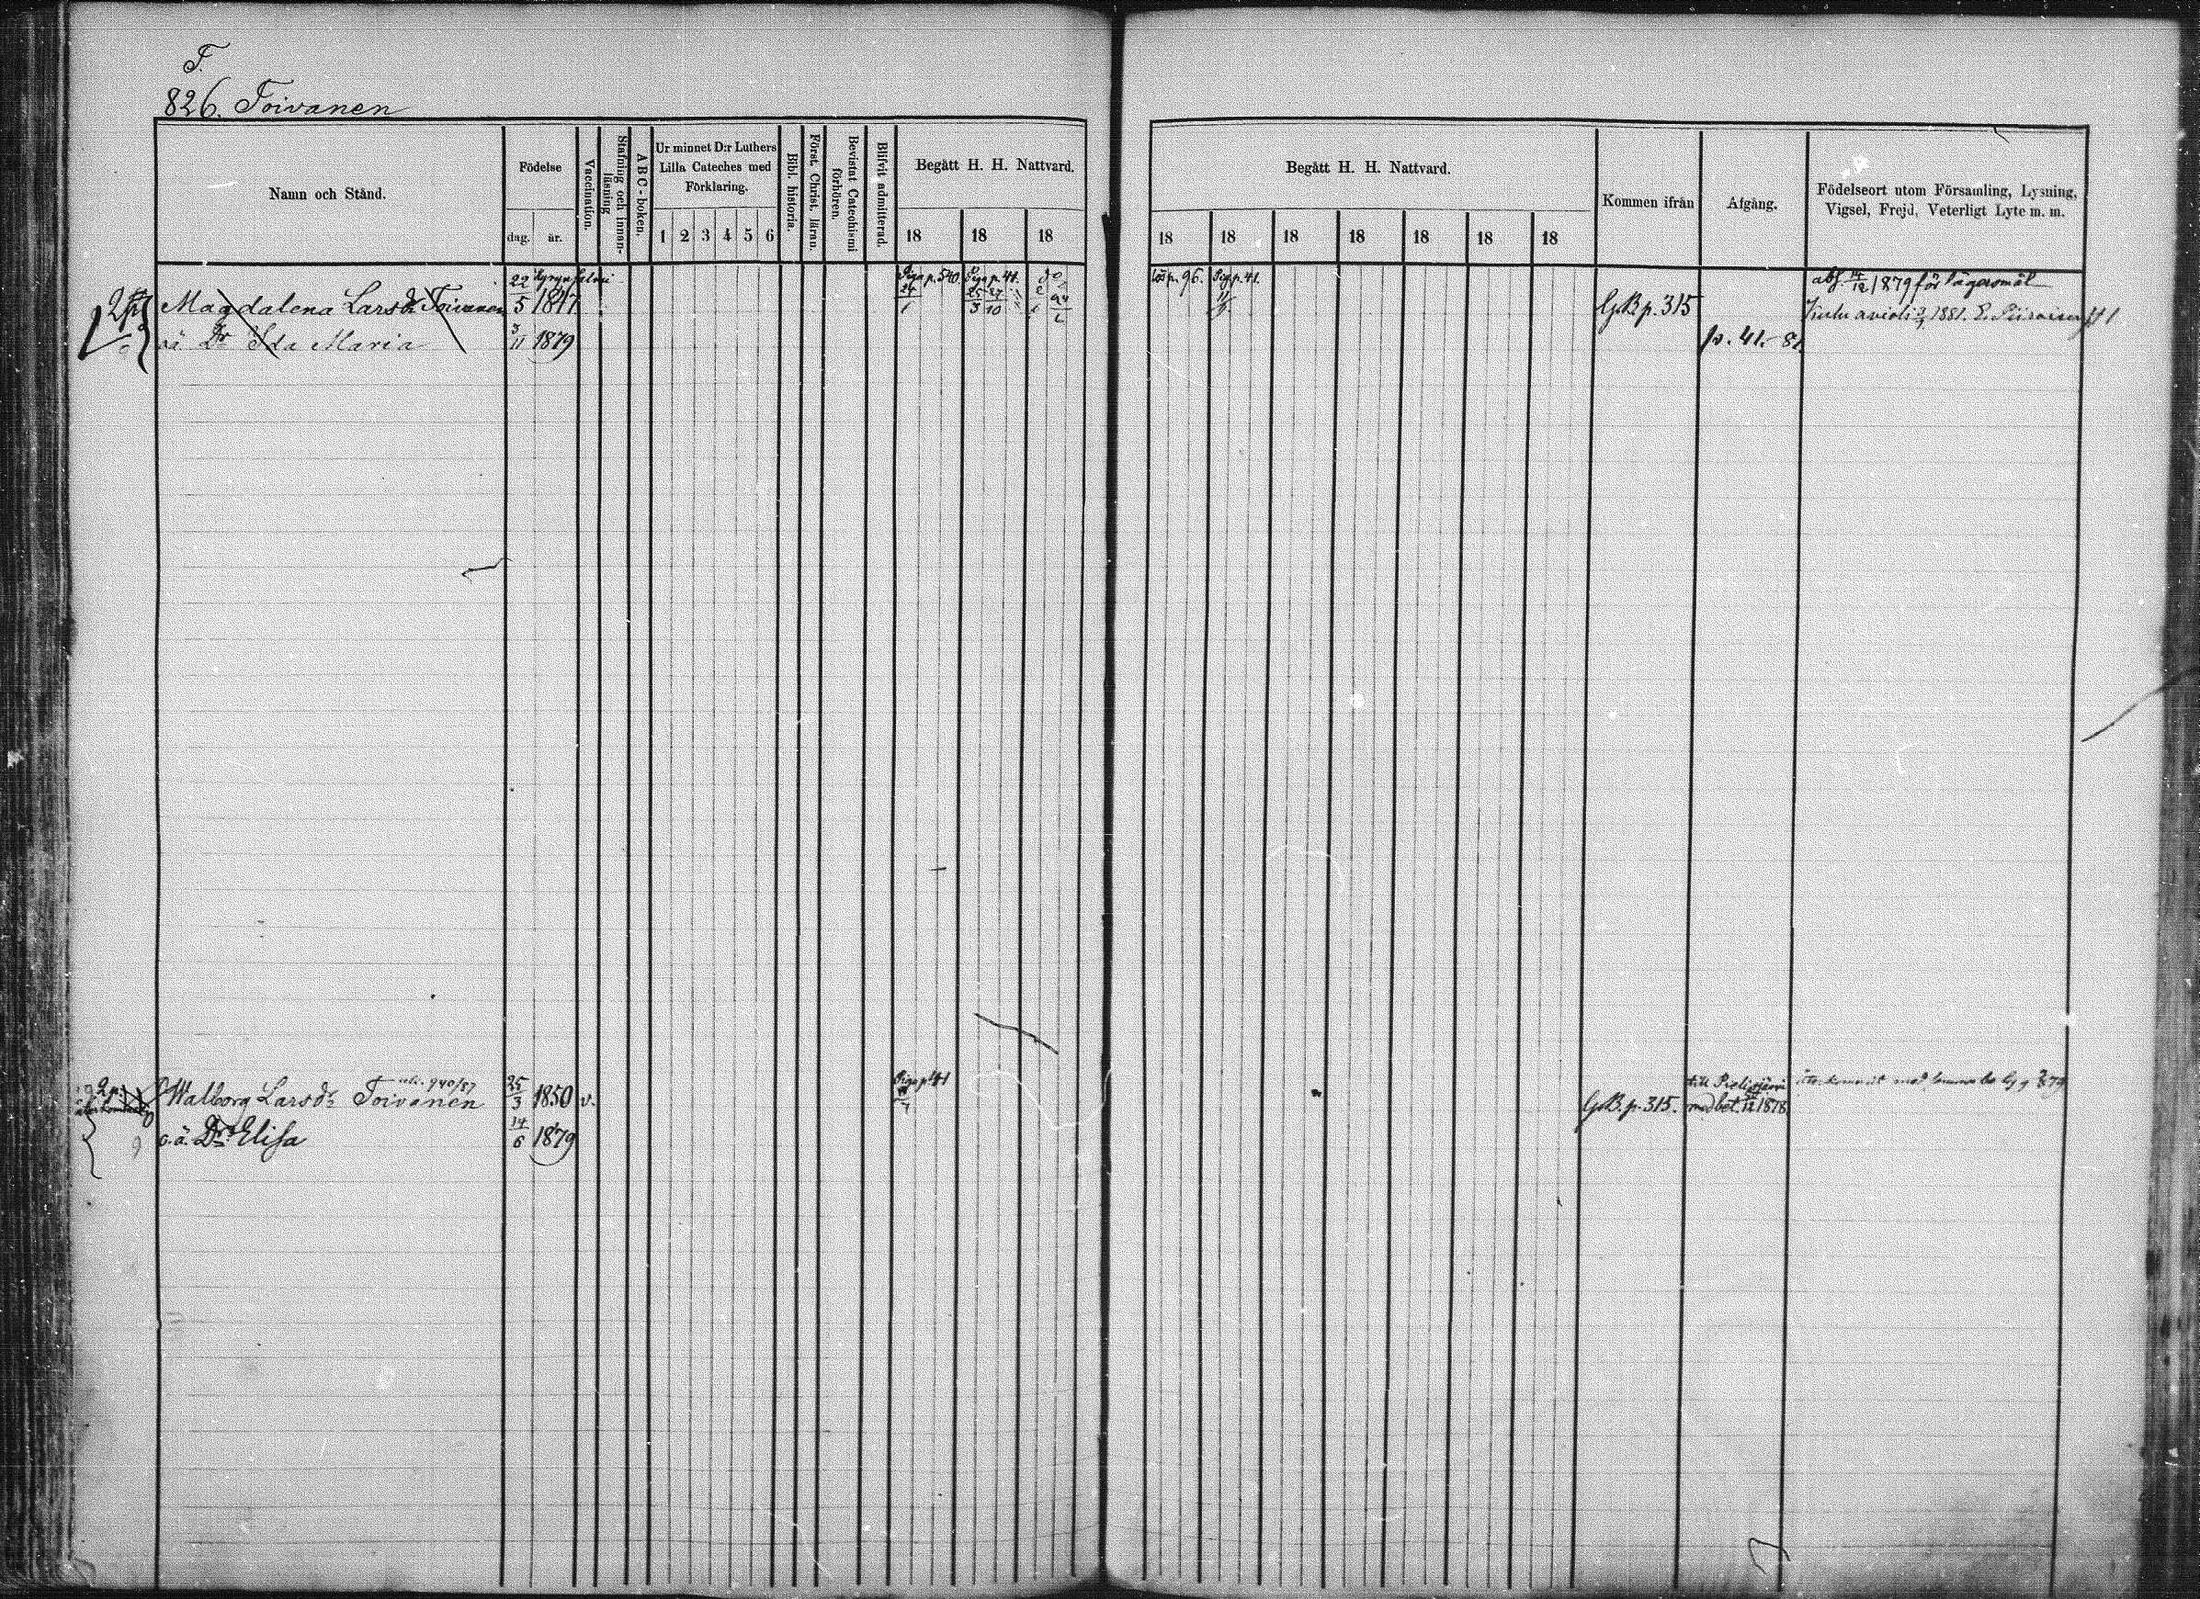 T.
826. Toivanen
Namn och Stånd.
Födelse
dag. år.
Vaccination.
Stafning och innan-läsning
ABC-boken.
Ur minnet D:r Luthers Lilla Cateches med Förklaring.
1 2 3 4 5 6
Bibl. historia.
Först. Christ. läran.
Bevistat Catechismi förhören.
Blifvit admitterad.
Begått H. H. Nattvard.
18 18 18
Begått H. H. Nattvard.
18 18 18 18 18 18 18
Kommen ifrån
Afgång.
Födelseort utom Församling, Lysning, Vigsel, Frejd, Veterligt Lyte m. m.
Magdalena Larsdr Toivanen 22/5 1847
Piga p. 540. Piga p. 41.
p. 96. Pig p. 41.
G.B. p. 315
abs. 14/12 1879 för lägersmål
1881.
oä Dr Ida Maria 3/11 1879
p. 41.-81.
2 p.
Walborg Larsdr Toivanen 25/3 1850 v.
940/87
Piga p 41
G.B. p. 315.
till Pielisjärvi
med bet. 1878
o.ä. Dr Elisa 14/6 1879